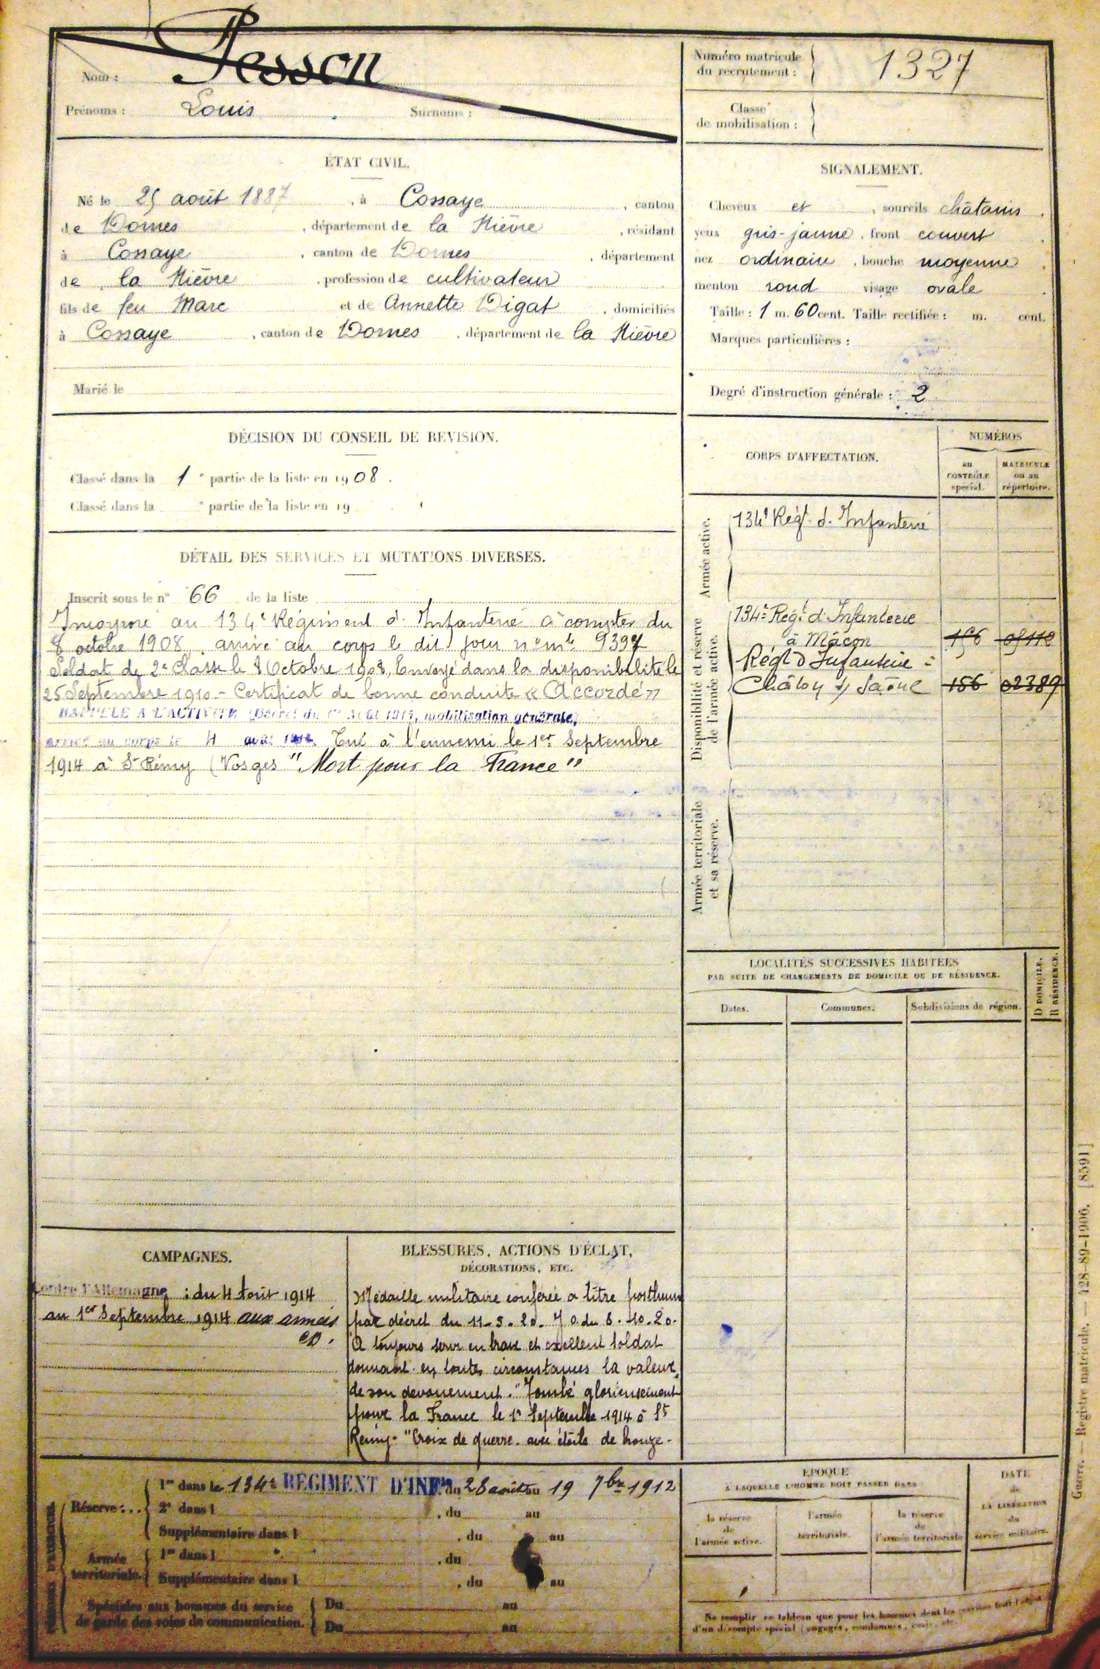 Nom : Pesson
Prénoms : Louis Surnoms :
Numéro matricule du recrutement : 1327
Classe de mobilisation :
ÉTAT CIVIL.
Né le 25 août 1887, à Cossaye, canton
de Dornes, département de la Nièvre, résidant
à Cossaye, canton de Dornes, département
de la Nièvre, profession de cultivateur
fils de feu Marc et de Annette Digat, domiciliés
à Cossaye, canton de Dornes, département de la Nièvre
Marié le
SIGNALEMENT.
Cheveux et, sourcils châtains.
yeux gris-jaune, front couvert
nez ordinaire, bouche moyenne
menton rond visage ovale
Taille : 1 m. 60 cent. Taille rectifiée : m. cent.
Marques particulières :
Degré d'instruction générale : 2
DÉCISION DU CONSEIL DE REVISION.
Classé dans la 1e partie de la liste en 1908.
Classé dans la e partie de la liste en 19
DÉTAIL DES SERVICES ET MUTATIONS DIVERSES.
Inscrit sous le n° 66 de la liste
Incorporé au 134e Régiment d'Infanterie à compter du
8 octobre 1908, arrivé au corps le dit jour n° mle 9397
Soldat de 2e Classe le 8 Octobre 1908, Envoyé dans la disponibilité le
25 Septembre 1910.- Certificat de bonne conduite « Accordé »
RAPPELÉ A L'ACTIVITÉ (Décret du 1er Août 1914, mobilisation générale,
arrivé au corps le 4 août 1914. Tué à l'ennemi le 1er Septembre
1914 à St Rémy (Vosges "Mort pour la France"
CORPS D'AFFECTATION.
NUMÉROS
au CONTRÔLE spécial.
MATRICULE ou au répertoire.
Armée active.
134e Régt d'Infanterie
Disponibilité et réserve de l'armée active.
134e Régt d'Infanterie
à Mâcon 156
Régt d'Infanterie =
Châlon s/ Saône 156 02389
Armée territoriale et sa réserve.
LOCALITÉS SUCCESSIVES HABITÉES
PAR SUITE DE CHANGEMENTS DE DOMICILE OU DE RÉSIDENCE.
D DOMICILE.
R RÉSIDENCE.
Dates. Communes. Subdivisions de région.
CAMPAGNES.
Contre l'Allemagne : du 4 Août 1914
au 1er Septembre 1914 aux armées
BLESSURES, ACTIONS D'ÉCLAT,
DÉCORATIONS, ETC.
Médaille militaire conférée à titre posthume
par décret du 11-5-20. J.O. du 6-10-20.
"A toujours servi en brave et excellent soldat
donnant en toutes circonstances la valeur
de son dévouement." Tombé glorieusement
pour la France le 1er Septembre 1914 à St
Rémy. "Croix de guerre avec étoile de bronze.
Réserve : . . .
1re dans le 134e RÉGIMENT D'INFie du 28 août au 19 7bre 1912
2e dans l , du au
Supplémentaire dans l , du au
Armée territoriale.
1re dans l , du
Supplémentaire dans l , du au
Spéciales aux hommes du service de garde des voies de communication.
Du au
Du au
ÉPOQUE
A LAQUELLE L'HOMME DOIT PASSER DANS :
la réserve de l'armée active.
l'armée territoriale.
la réserve de l'armée territoriale
DATE de LA LIBÉRATION du service militaire.
Ne remplir ce tableau que pour les hommes dont les services font l'objet
d'un décompte spécial (engagés, condamnés, etc.
Guerre. Registre matricule. — 128-89-1906. [8591]